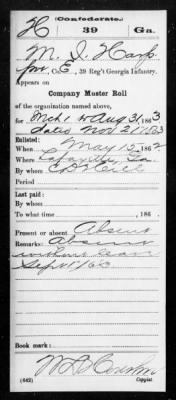 H (Confederate.) 39 Ga.
M. J. Harp
Pvt, Co. E, 39 Reg't Georgia Infantry.
Appears on
Company Muster Roll
of the organization named above,
for Mch 1 to Aug 31, 1863
dated Nov 21, 1863
Enlisted:
When May 15, 1862
Where Lafayette, Ga.
By whom
Period
Last paid:
By whom
To what time , 186 .
Present or absent Absent
Remarks: Absent
without leave
Sept 1/63
Book mark:
(642) Copyist.